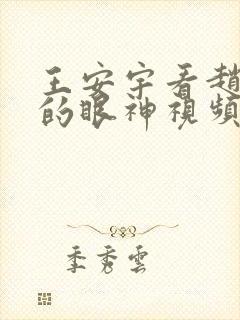 王安宇看趙
的眼神視頻
季秀雲